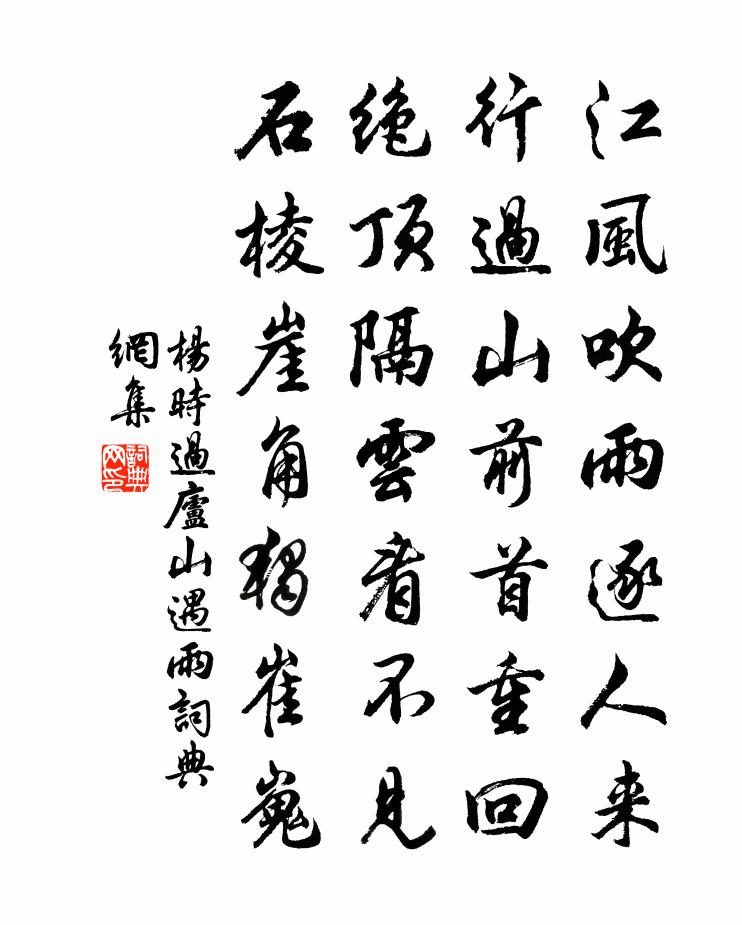 江風吹雨逐人来
行過山前首重回
绝顶隔雲看不見
石棱崖角猶崔嵬
楊時過廬山遇雨詞典
網集
詞典
网印